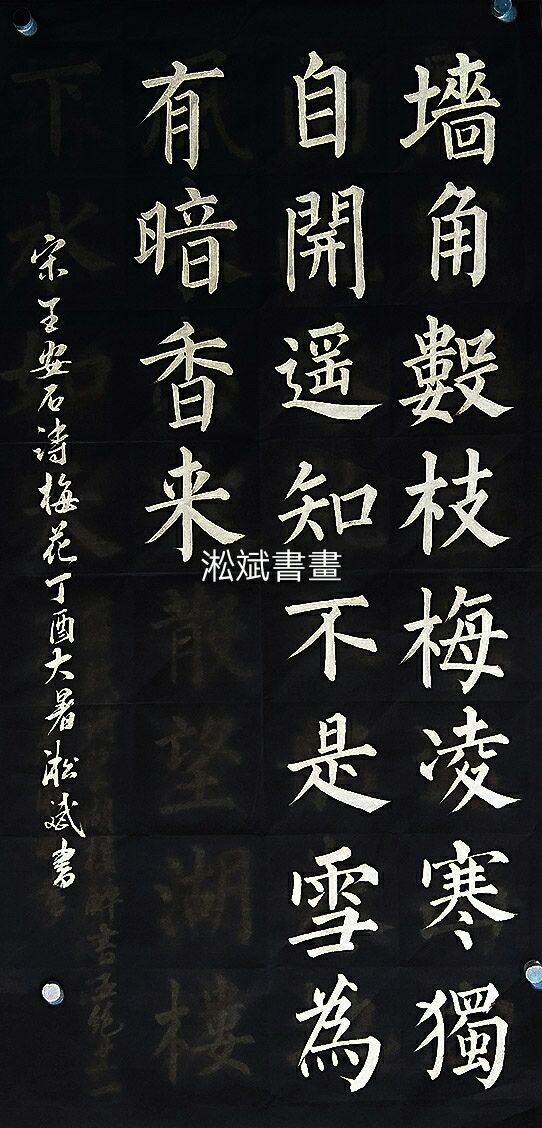 墻角數枝梅凌寒獨
自開遥知不是雪為
有暗香来
宋王安石詩梅花丁酉大暑淞斌書
淞斌書畫